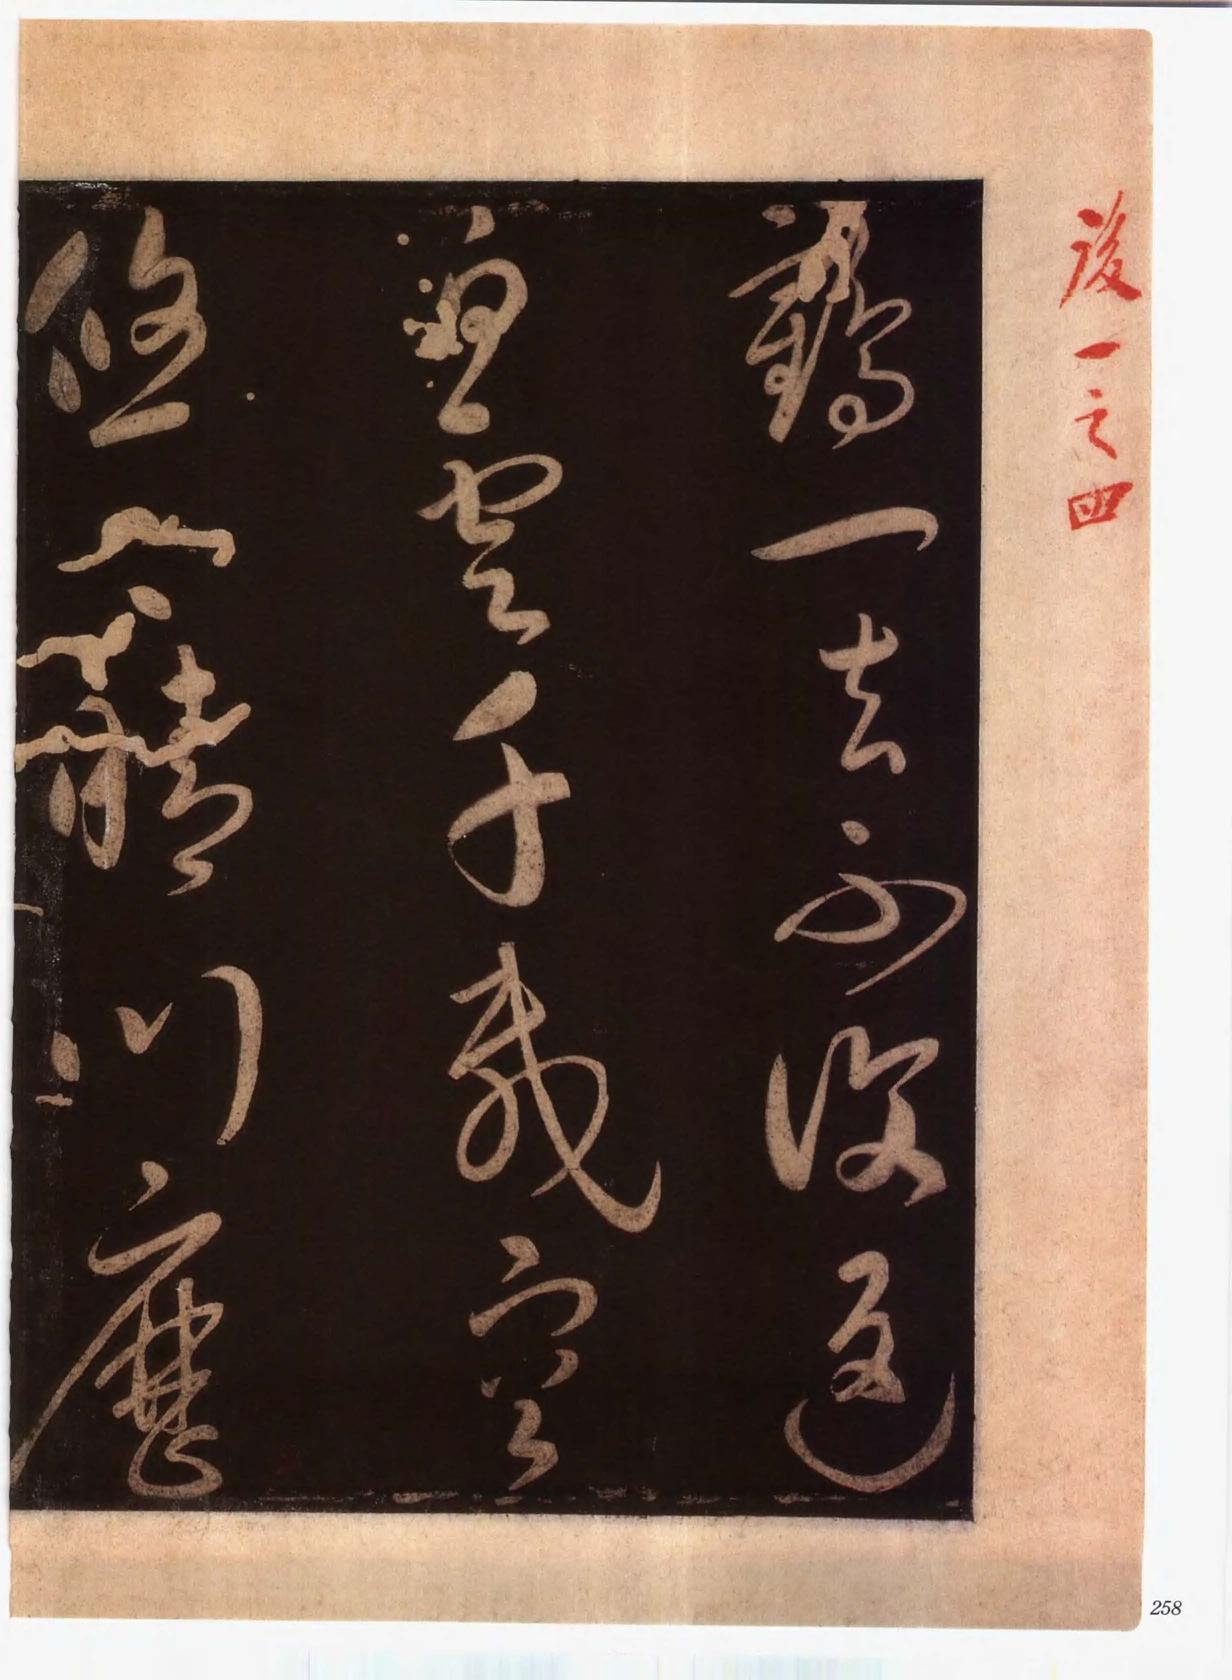 後一之四
鶴一去不復返
白雲千載空
悠悠晴川歷
258